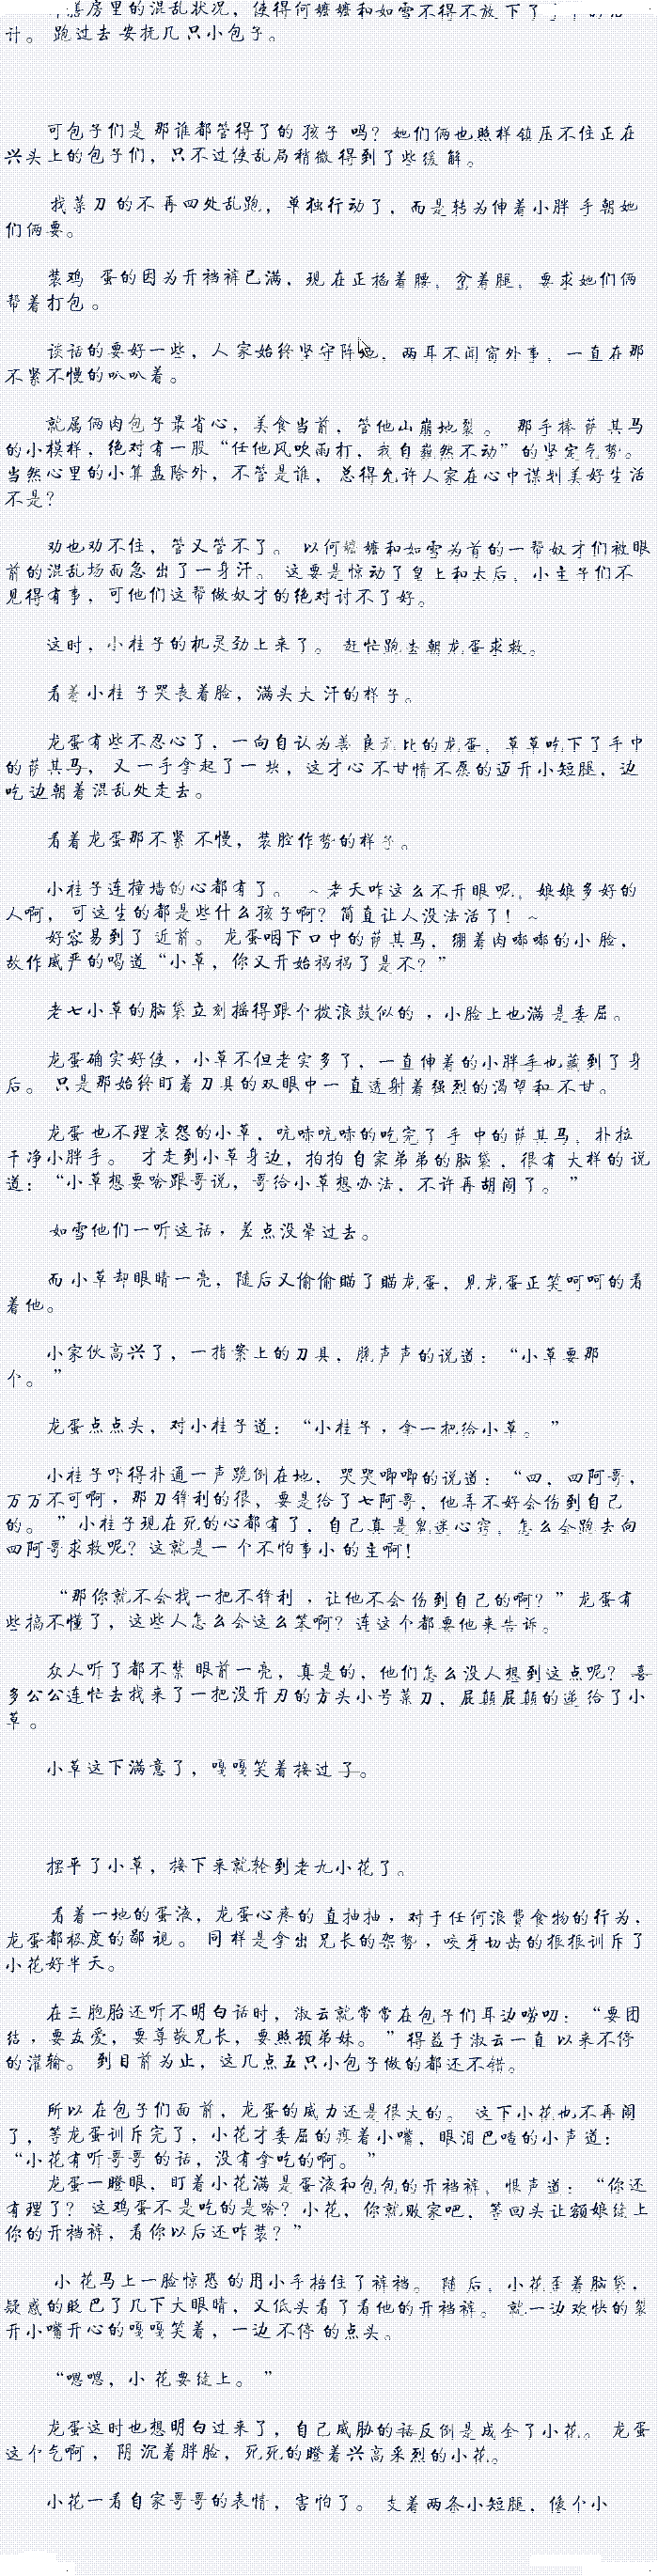 膳房里的混乱状况，使得何嬷嬷和如雪不得不放下了
计。 跑过去安抚几只小包子。
可包子们是那谁都管得了的孩子吗？她们俩也照样镇压不住正在
兴头上的包子们，只不过使乱局稍微得到了些缓解。
找菜刀的不再四处乱跑，单独行动了，而是转为伸着小胖手朝她
们俩要。
装鸡蛋的因为开裆裤已满，现在正掐着腰，岔着腿，要求她们俩
帮着打包。
谈话的要好一些，人家始终坚守阵地，两耳不闻窗外事，一直在那
不紧不慢的叭叭着。
就属俩肉包子最省心，美食当前，管他山崩地裂。 那手捧萨其马
的小模样，绝对有一股“任他风吹雨打，我自巍然不动”的坚定气势。
当然心里的小算盘除外，不管是谁，总得允许人家在心中谋划美好生活
不是？
劝也劝不住，管又管不了。 以何嬷嬷和如雪为首的一帮奴才们被眼
前的混乱场面急出了一身汗。 这要是惊动了皇上和太后，小主子们不
见得有事，可他们这帮做奴才的绝对讨不了好。
这时，小桂子的机灵劲上来了。 赶忙跑去朝龙蛋求救。
看着小桂子哭丧着脸，满头大汗的样子。
龙蛋有些不忍心了，一向自认为善良无比的龙蛋，草草吃下了手中
的萨其马，又一手拿起了一块，这才心不甘情不愿的迈开小短腿，边
吃边朝着混乱处走去。
看着龙蛋那不紧不慢，装腔作势的样子。
小桂子连撞墙的心都有了。 ~老天咋这么不开眼呢，娘娘多好的
人啊，可这生的都是些什么孩子啊？简直让人没法活了！~
好容易到了近前。 龙蛋咽下口中的萨其马，绷着肉嘟嘟的小脸，
故作威严的喝道“小草，你又开始祸祸了是不？”
老七小草的脑袋立刻摇得跟个拨浪鼓似的，小脸上也满是委屈。
龙蛋确实好使，小草不但老实多了，一直伸着的小胖手也藏到了身
后。 只是那始终盯着刀具的双眼中一直透射着强烈的渴望和不甘。
龙蛋也不理哀怨的小草，吭哧吭哧的吃完了手中的萨其马，扑拉
干净小胖手。 才走到小草身边，拍拍自家弟弟的脑袋，很有大样的说
道：“小草想要啥跟哥说，哥给小草想办法，不许再胡闹了。”
如雪他们一听这话，差点没晕过去。
而小草却眼睛一亮，随后又偷偷瞄了瞄龙蛋，见龙蛋正笑呵呵的看
着他。
小家伙高兴了，一指案上的刀具，脆声声的说道：“小草要那
个。”
龙蛋点点头，对小桂子道：“小桂子，拿一把给小草。”
小桂子吓得扑通一声跪倒在地，哭哭唧唧的说道：“四、四阿哥，
万万不可啊，那刀锋利的很，要是给了七阿哥，他弄不好会伤到自己
的。”小桂子现在死的心都有了，自己真是鬼迷心窍，怎么会跑去向
四阿哥求救呢？这就是一个不怕事小的主啊！
“那你就不会找一把不锋利，让他不会伤到自己的啊？”龙蛋有
些搞不懂了，这些人怎么会这么笨啊？连这个都要他来告诉。
众人听了都不禁眼前一亮，真是的，他们怎么没人想到这点呢？喜
多公公连忙去找来了一把没开刃的方头小号菜刀，屁颠屁颠的递给了小
草。
小草这下满意了，嘎嘎笑着接过了。
摆平了小草，接下来就轮到老九小花了。
看着一地的蛋液，龙蛋心疼的直抽抽，对于任何浪费食物的行为，
龙蛋都极度的鄙视。 同样是拿出兄长的架势，咬牙切齿的狠狠训斥了
小花好半天。
在三胞胎还听不明白话时，淑云就常常在包子们耳边唠叨：“要团
结，要友爱，要尊敬兄长，要照顾弟妹。”得益于淑云一直以来不停
的灌输。 到目前为止，这几点五只小包子做的都还不错。
所以在包子们面前，龙蛋的威力还是很大的。 这下小花也不再闹
了，等龙蛋训斥完了，小花才委屈的瘪着小嘴，眼泪巴喳的小声道：
“小花有听哥哥的话，没有拿吃的啊。”
龙蛋一瞪眼，盯着小花满是蛋液和包包的开裆裤，恨声道：“你还
有理了？这鸡蛋不是吃的是啥？小花，你就败家吧，等回头让额娘缝上
你的开裆裤，看你以后还咋装？”
小花马上一脸惊恐的用小手捂住了裤裆。 随后，小花歪着脑袋，
疑惑的眨巴了几下大眼睛，又低头看了看他的开裆裤。 就一边欢快的裂
开小嘴开心的嘎嘎笑着，一边不停的点头。
“嗯嗯，小花要缝上。”
龙蛋这时也想明白过来了，自己威胁的话反倒是成全了小花。 龙蛋
这个气啊，阴沉着胖脸，死死的瞪着兴高采烈的小花。
小花一看自家哥哥的表情，害怕了。 支着两条小短腿，像个小